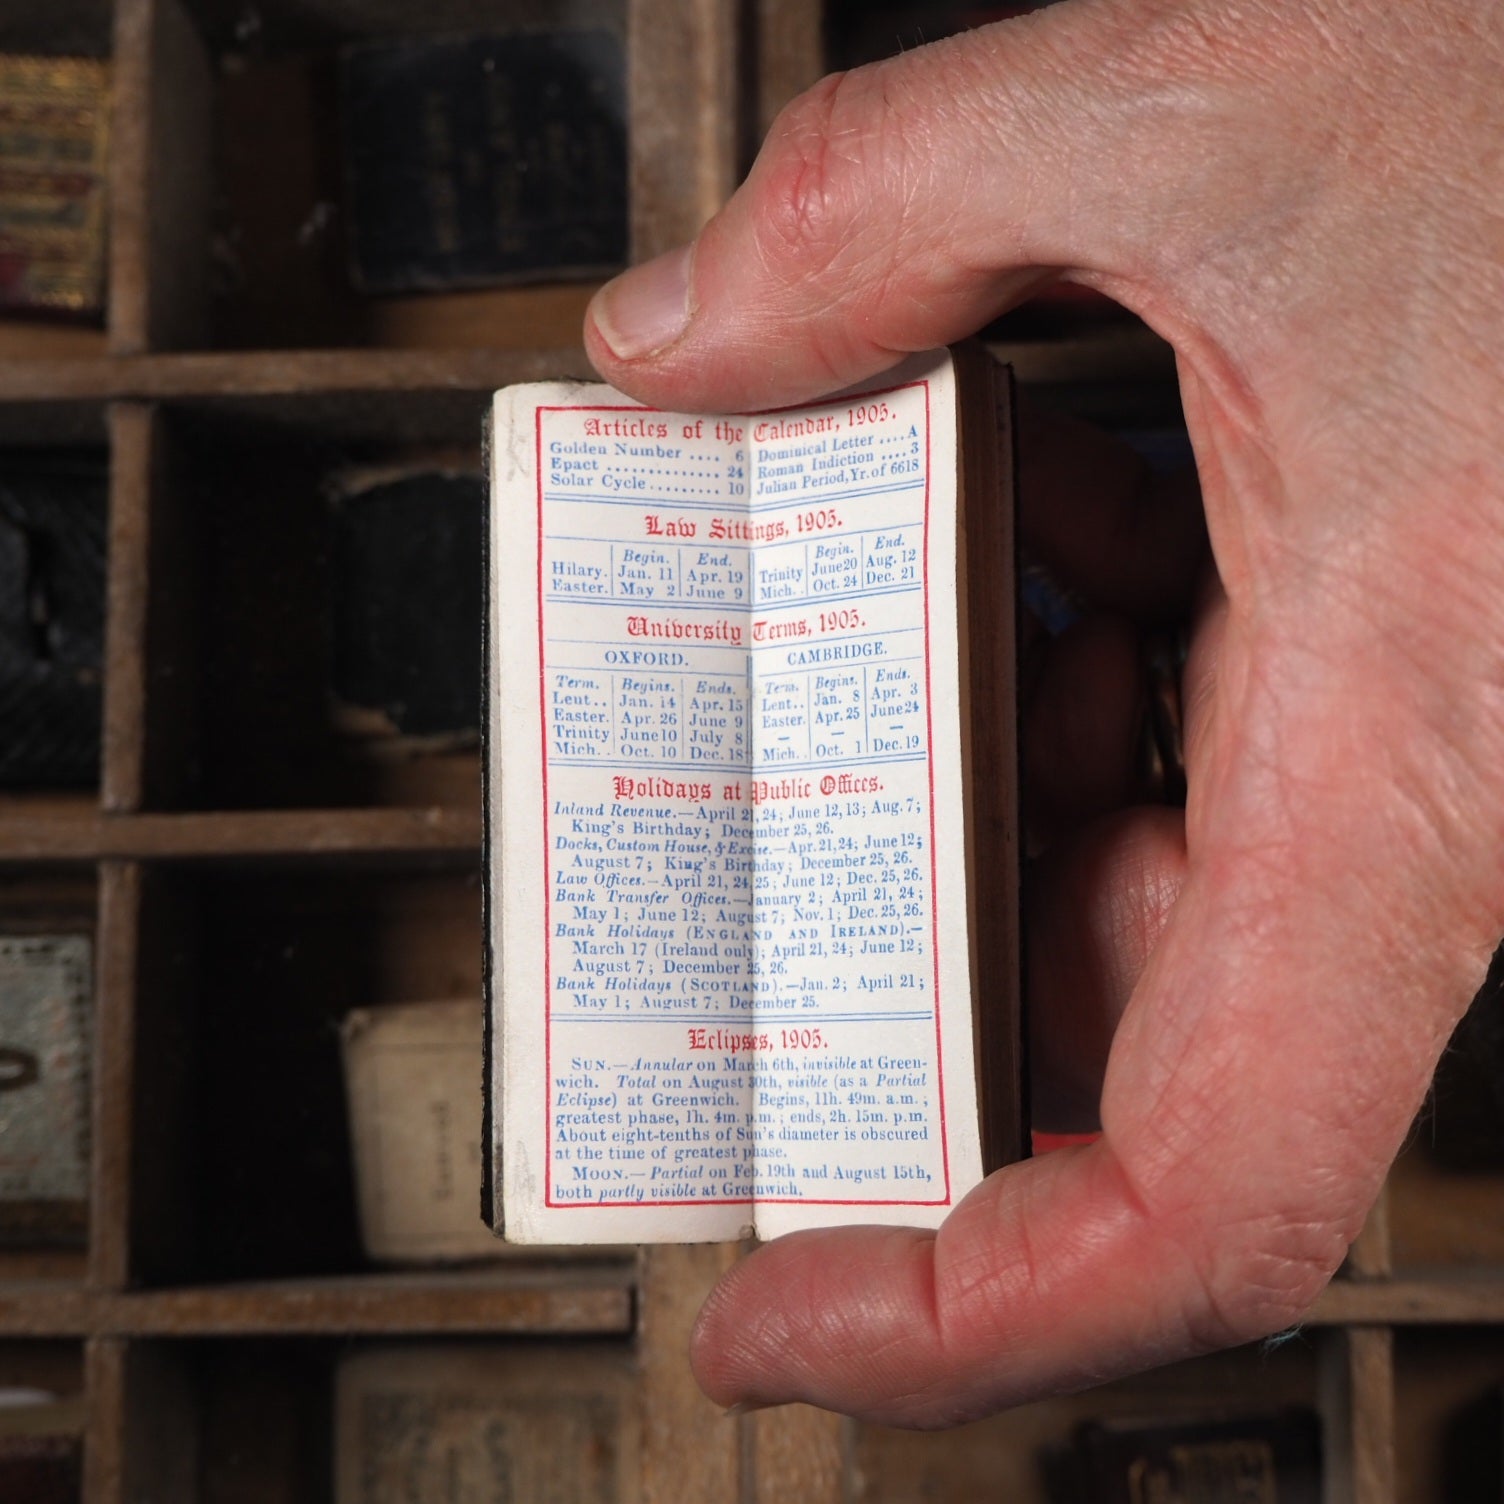 Articles of the Calendar, 1905.
Golden Number .... 6
Epact .............. 24
Solar Cycle......... 10
Dominical Letter ....A
Roman Indiction ....3
Julian Period,Yr.of 6618
Law Sittings, 1905.
Begin. End. Begin. End.
Hilary. Jan. 11 Apr. 19 Trinity June20 Aug. 12
Easter. May 2 June 9 Mich. . Oct. 24 Dec. 21
University Terms, 1905.
OXFORD. CAMBRIDGE.
Term. Begins. Ends. Term. Begins. Ends.
Lent.. Jan. 14 Apr. 15 Lent.. Jan. 8 Apr. 3
Easter. Apr. 26 June 9 Easter. Apr. 25 June24
Trinity June10 July 8 — — —
Mich. . Oct. 10 Dec. 18 Mich. . Oct. 1 Dec. 19
Holidays at Public Offices.
Inland Revenue.—April 21, 24; June 12, 13; Aug. 7;
King's Birthday; December 25, 26.
Docks, Custom House, & Excise.—Apr. 21, 24; June 12;
August 7; King's Birthday; December 25, 26.
Law Offices.—April 21, 24, 25; June 12; Dec. 25, 26.
Bank Transfer Offices.—January 2; April 21, 24;
May 1; June 12; August 7; Nov. 1; Dec. 25, 26.
Bank Holidays (ENGLAND AND IRELAND).—
March 17 (Ireland only); April 21, 24; June 12;
August 7; December 25, 26.
Bank Holidays (SCOTLAND).—Jan. 2; April 21;
May 1; August 7; December 25.
Eclipses, 1905.
SUN.—Annular on March 6th, invisible at Green-
wich. Total on August 30th, visible (as a Partial
Eclipse) at Greenwich. Begins, 11h. 49m. a.m.;
greatest phase, 1h. 4m. p.m.; ends, 2h. 15m. p.m.
About eight-tenths of Sun's diameter is obscured
at the time of greatest phase.
MOON.—Partial on Feb. 19th and August 15th,
both partly visible at Greenwich.